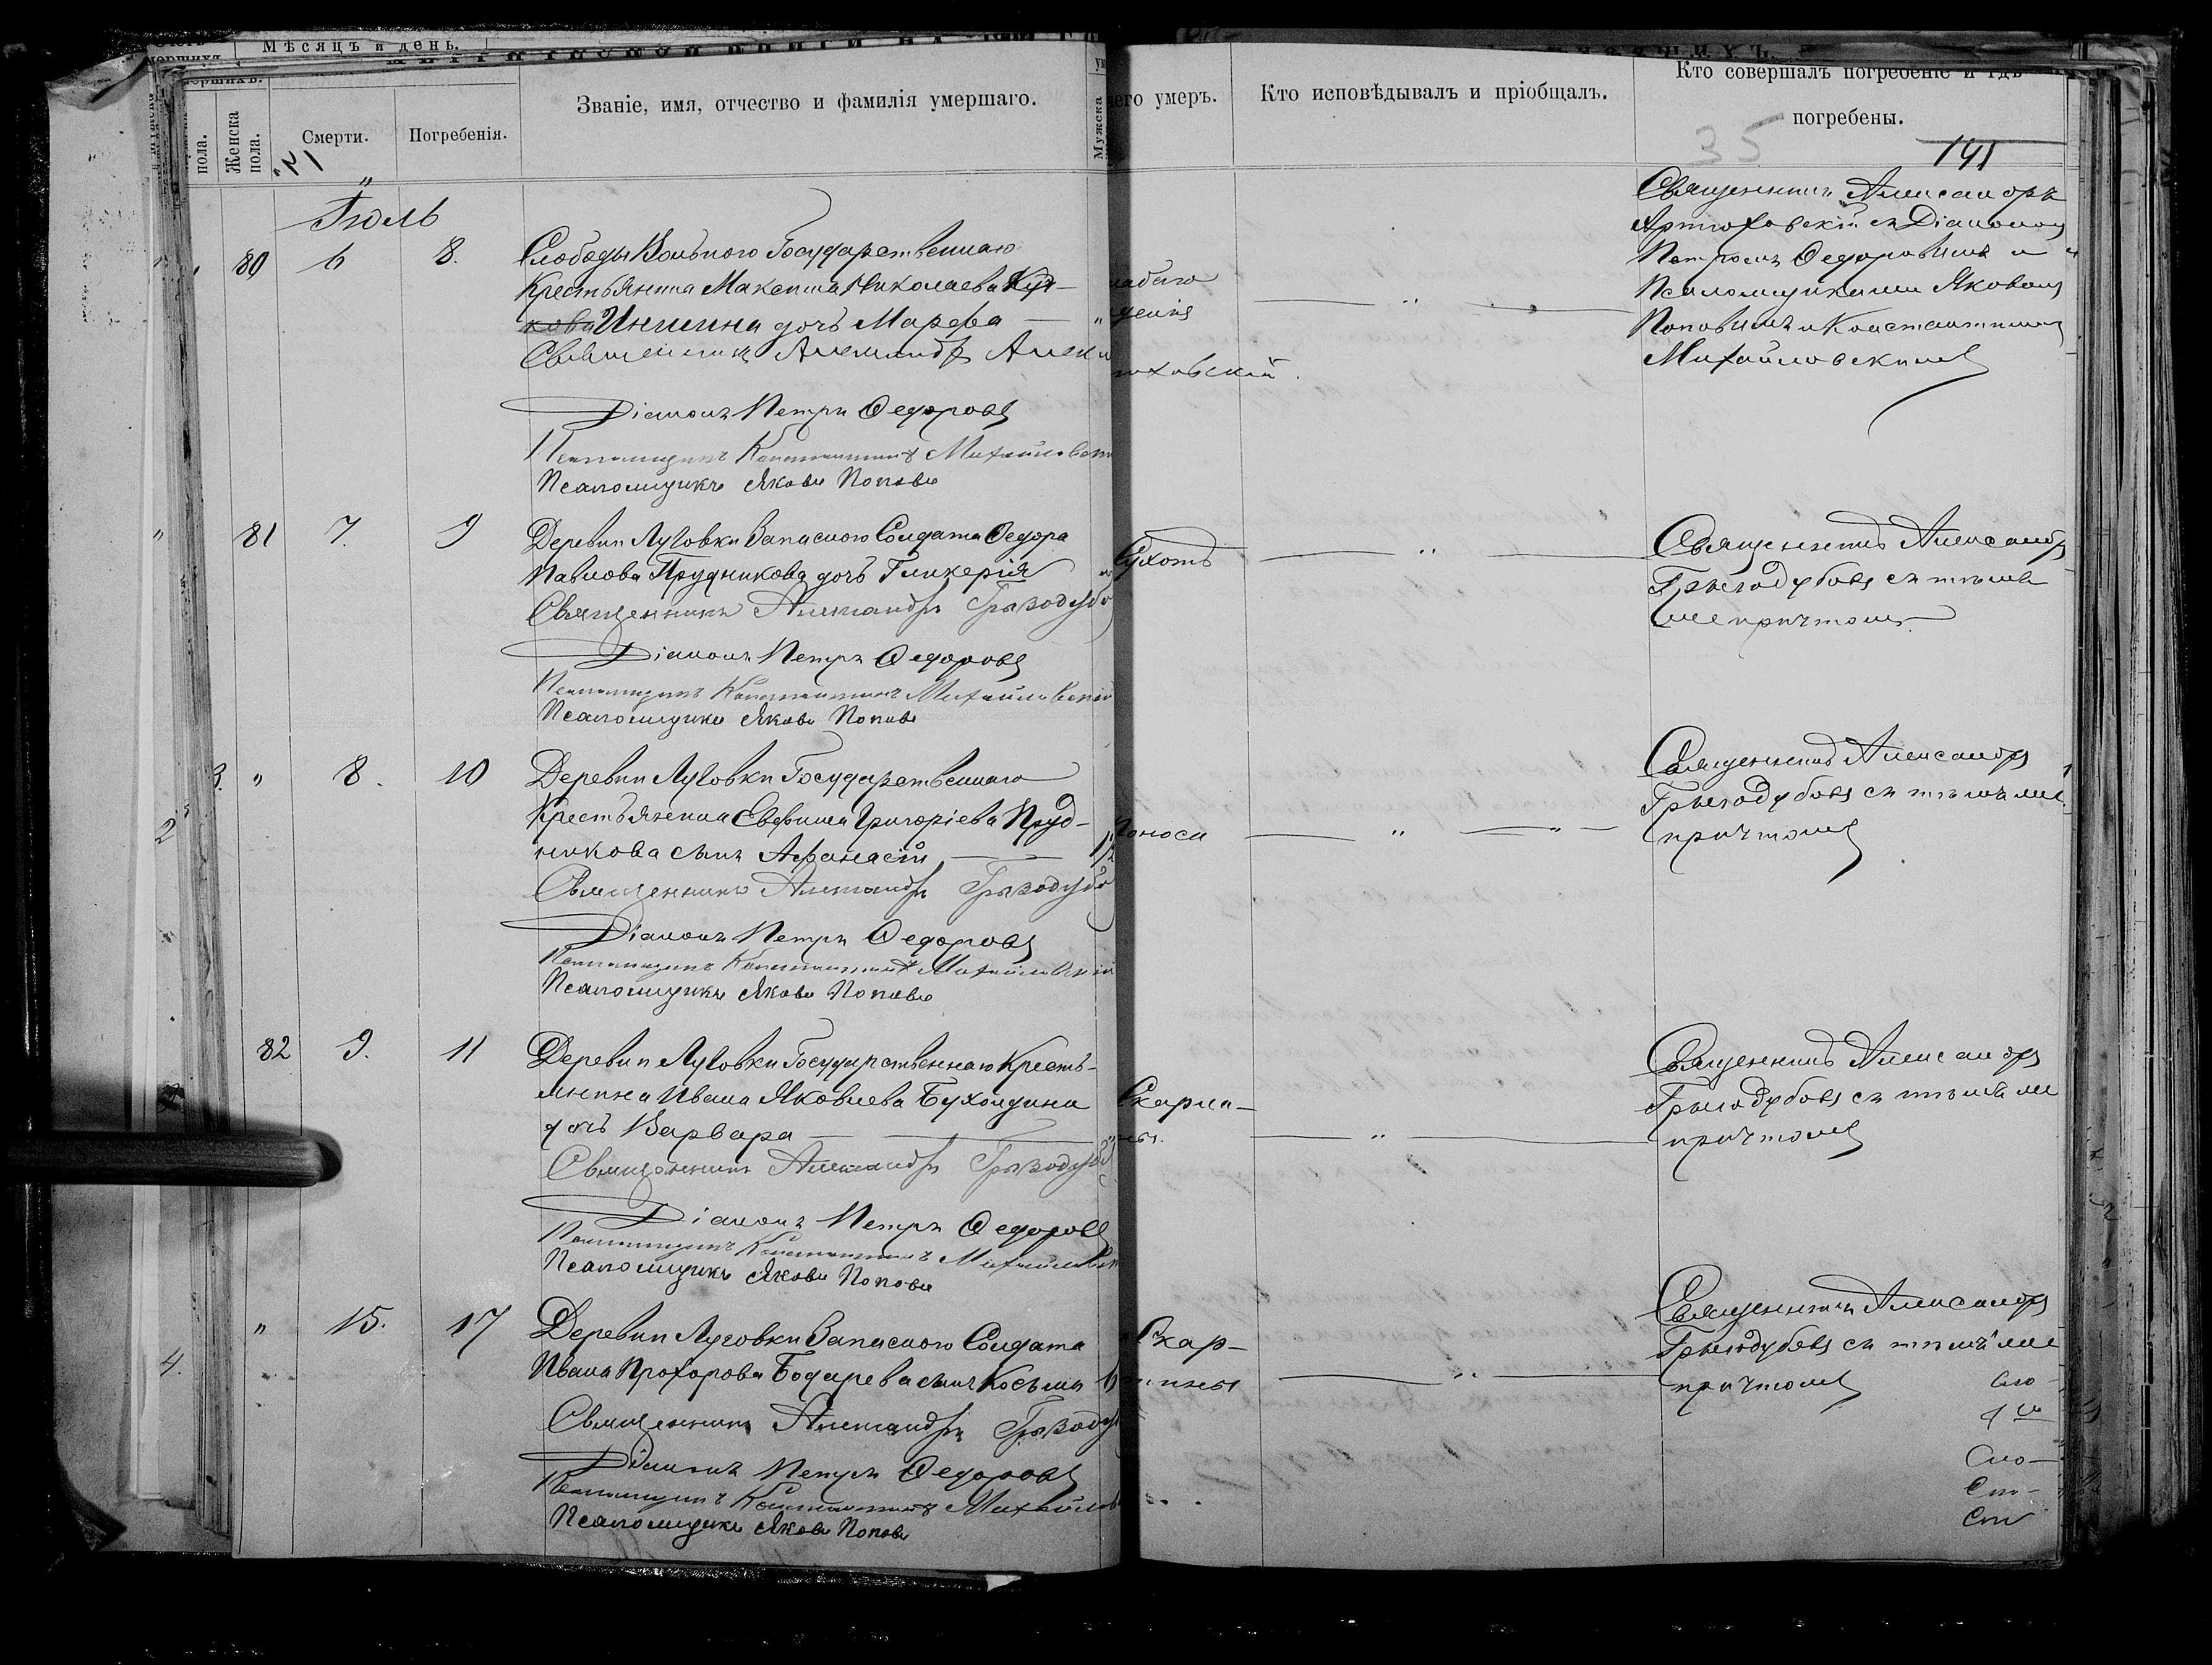 Мѣсяцъ и день.
Званіе, имя, отчество и фамилія умершаго.
чего умеръ.
Кто исповѣдывалъ и пріобщалъ.
Кто совершалъ погребеніе и гдѣ
погребены.
пола.
Женска
пола.
Смерти.
Погребенія.
Мужска
35
141
Іюль
80 6 8.
Слободы Вольного Государственнаго
Крестьянина Максима Николаева
Инишина дочь Марфа
Священникъ Александръ
Діаконъ Петръ Ѳедоровъ
Псаломщикъ Константинъ Михайловскій
Псаломщикъ Яковъ Поповъ
Священникъ Александръ
Артюховскій съ Діакономъ
Петромъ Ѳедоровымъ и
Псаломщиками Яковомъ
Поповымъ и Константиномъ
Михайловскимъ
81 7. 9
Деревни Луговки Запасного Солдата Ѳедора
Павлова Прудникова дочь Гликерія
Священникъ Александръ
Діаконъ Петръ Ѳедоровъ
Псаломщикъ Константинъ Михайловскій
Псаломщикъ Яковъ Поповъ
Сухотъ
Священникъ Александръ
Грызодубовъ съ тѣмъ
же причтомъ
" 8. 10
Деревни Луговки Государственнаго
Крестьянина Евфима Григоріева Пруд-
никова сынъ Аѳанасій
Священникъ Александръ
Діаконъ Петръ Ѳедоровъ
Псаломщикъ Константинъ Михайловскій
Псаломщикъ Яковъ Поповъ
поноса
Священникъ Александръ
Грызодубовъ съ тѣмъ же
причтомъ
82 9. 11
Деревни Луговки Государственнаго Кресть-
янина Ивана Яковлева Бухолдина
дочь Варвара
Священникъ Александръ
Діаконъ Петръ Ѳедоровъ
Псаломщикъ Константинъ
Псаломщикъ Яковъ Поповъ
Скарла-
Священникъ Александръ
Грызодубовъ съ тѣмъ же
причтомъ
" 15. 17
Деревни Луговки Запасного Солдата
Ивана Прохорова Бодарева сынъ Косьма
Священникъ Александръ
Діаконъ Петръ Ѳедоровъ
Псаломщикъ Константинъ
Псаломщикъ Яковъ Поповъ
Скар-
Священникъ Александръ
Грызодубовъ съ тѣмъ же
причтомъ